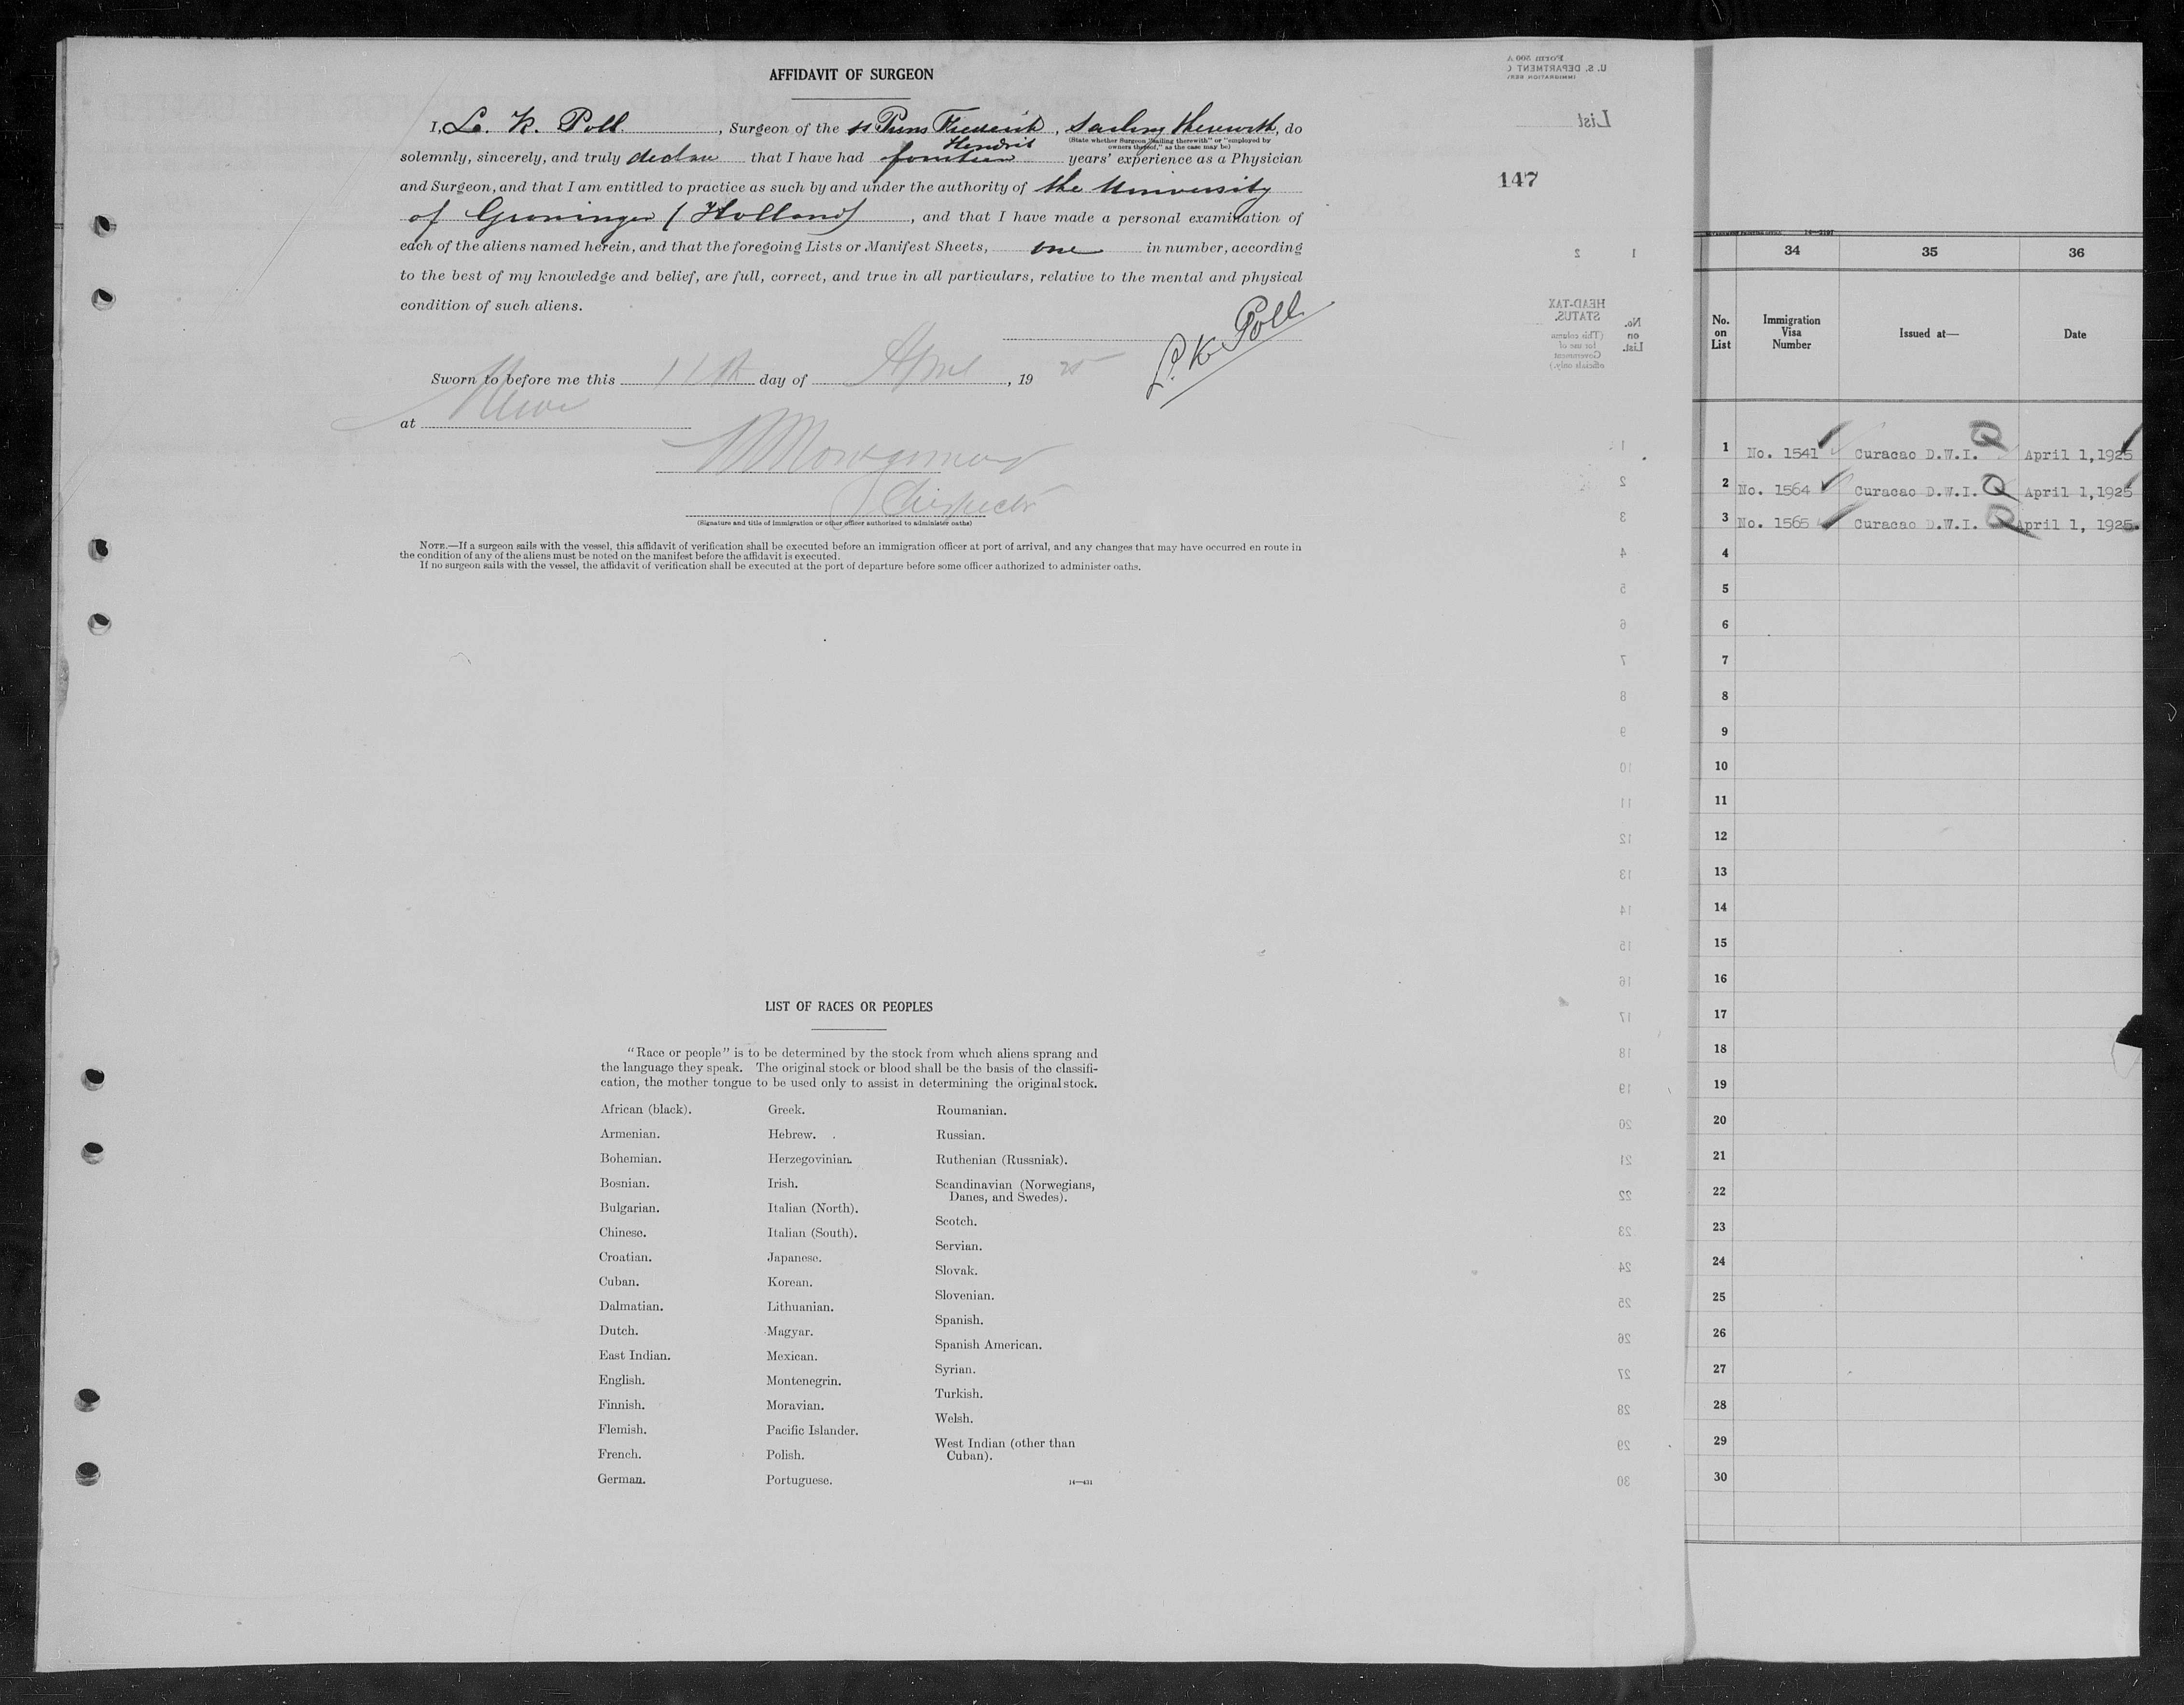 AFFIDAVIT OF SURGEON
I, L. K. Poll, Surgeon of the ss Prins Frederik Hendrik, Sailing therewith, do
(State whether Surgeon "sailing therewith" or "employed by owners thereof," as the case may be)
solemnly, sincerely, and truly declare that I have had fourteen years' experience as a Physician
and Surgeon, and that I am entitled to practice as such by and under the authority of the University
of Groningen (Holland), and that I have made a personal examination of
each of the aliens named herein, and that the foregoing Lists or Manifest Sheets, one in number, according
to the best of my knowledge and belief, are full, correct, and true in all particulars, relative to the mental and physical
condition of such aliens.
L. K. Poll
Sworn to before me this 11th day of April, 19 25
at
Montgomery
Inspector
(Signature and title of immigration or other officer authorized to administer oaths)
NOTE.—If a surgeon sails with the vessel, this affidavit of verification shall be executed before an immigration officer at port of arrival, and any changes that may have occurred en route in
the condition of any of the aliens must be noted on the manifest before the affidavit is executed.
If no surgeon sails with the vessel, the affidavit of verification shall be executed at the port of departure before some officer authorized to administer oaths.
LIST OF RACES OR PEOPLES
"Race or people" is to be determined by the stock from which aliens sprang and
the language they speak. The original stock or blood shall be the basis of the classifi-
cation, the mother tongue to be used only to assist in determining the original stock.
African (black).
Armenian.
Bohemian.
Bosnian.
Bulgarian.
Chinese.
Croatian.
Cuban.
Dalmatian.
Dutch.
East Indian.
English.
Finnish.
Flemish.
French.
German.
Greek.
Hebrew.
Herzegovinian.
Irish.
Italian (North).
Italian (South).
Japanese.
Korean.
Lithuanian.
Magyar.
Mexican.
Montenegrin.
Moravian.
Pacific Islander.
Polish.
Portuguese.
Roumanian.
Russian.
Ruthenian (Russniak).
Scandinavian (Norwegians,
Danes, and Swedes).
Scotch.
Servian.
Slovak.
Slovenian.
Spanish.
Spanish American.
Syrian.
Turkish.
Welsh.
West Indian (other than
Cuban).
14—431
Form 500 A
U. S. DEPARTMENT
List
147
1 2
No. on List.
HEAD-TAX STATUS.
(This column for use of Government officials only.)
1
2
3
4
5
6
7
8
9
10
11
12
13
14
15
16
17
18
19
20
21
22
23
24
25
26
27
28
29
30
34 35 36
No. on List
Immigration Visa Number
Issued at—
Date
1 No. 1541 Curacao D.W.I. April 1,1925
2 No. 1564 Curacao D.W.I. April 1,1925
3 No. 1565 Curacao D.W.I. April 1, 1925
4
5
6
7
8
9
10
11
12
13
14
15
16
17
18
19
20
21
22
23
24
25
26
27
28
29
30